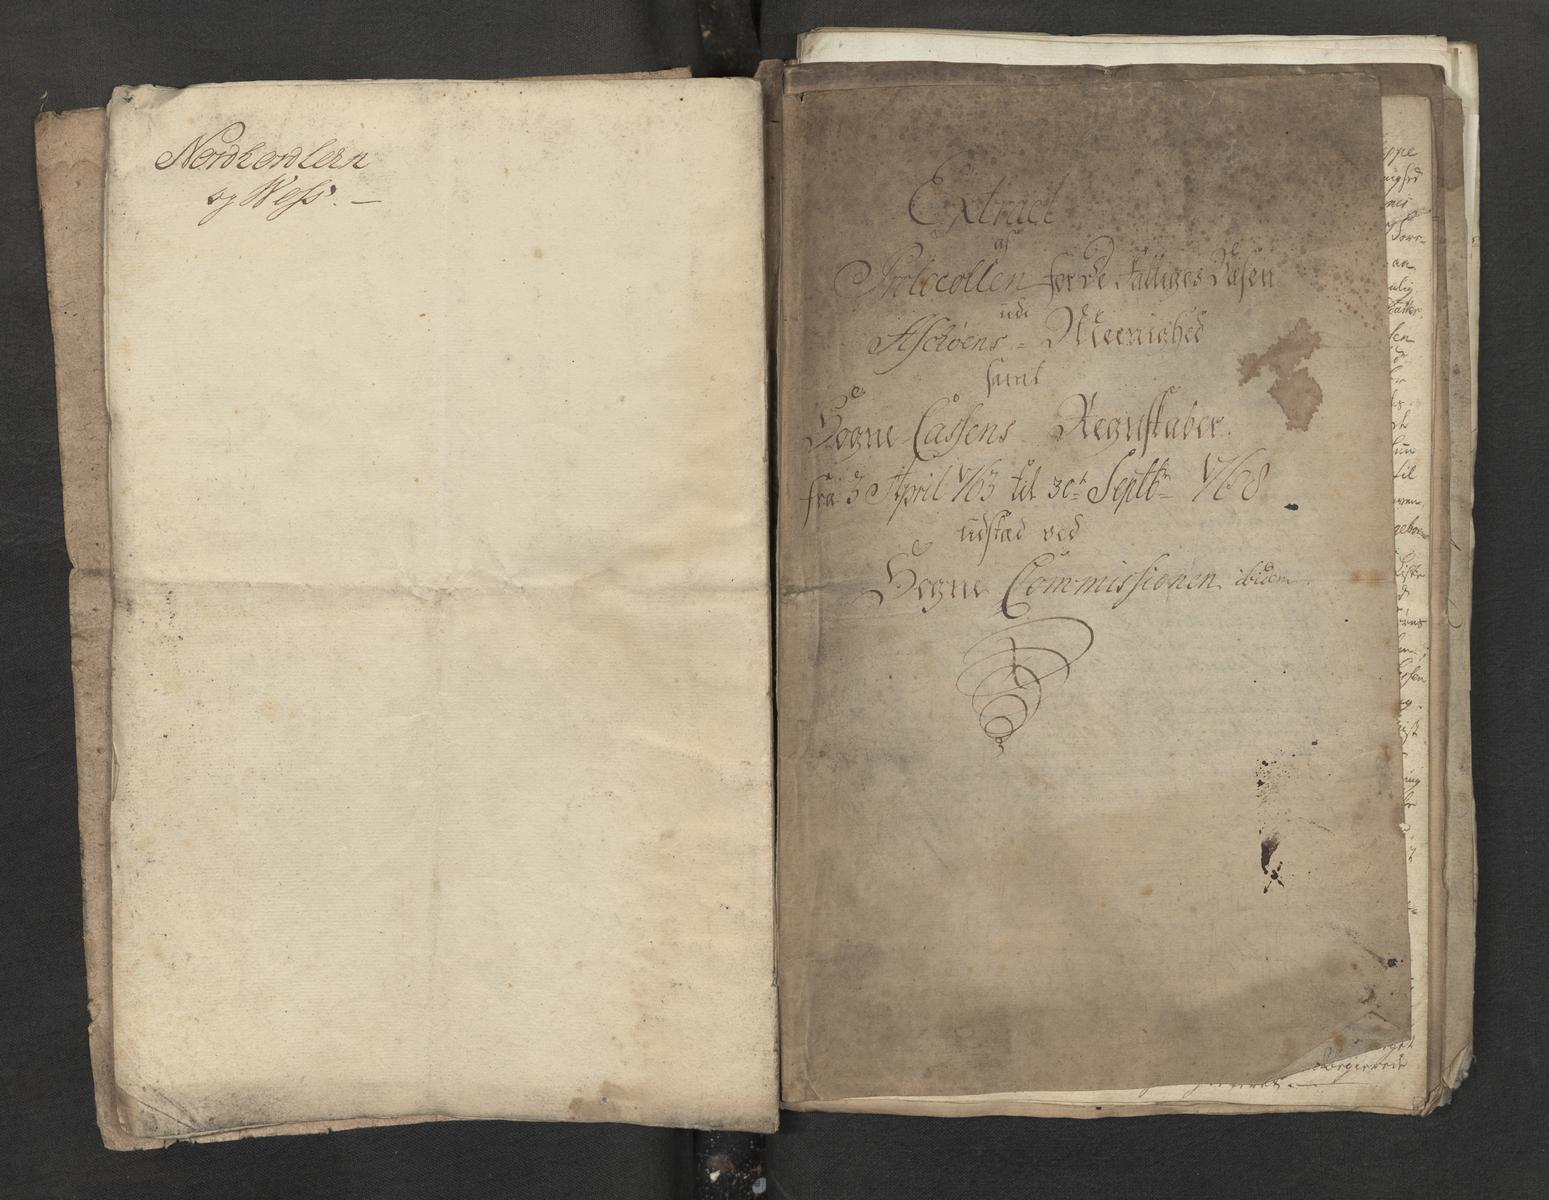 Nordhordlehn
og Woss. —
Extract
af
Protocollen for de Fattiges Væsen
udi
Askøens - Meenighed
samt
Sogne Cassens Regnskaber
fra 3 April 1763 til 30t Septbr 1768
udstæd ved
Sogne Commissionen ibidem